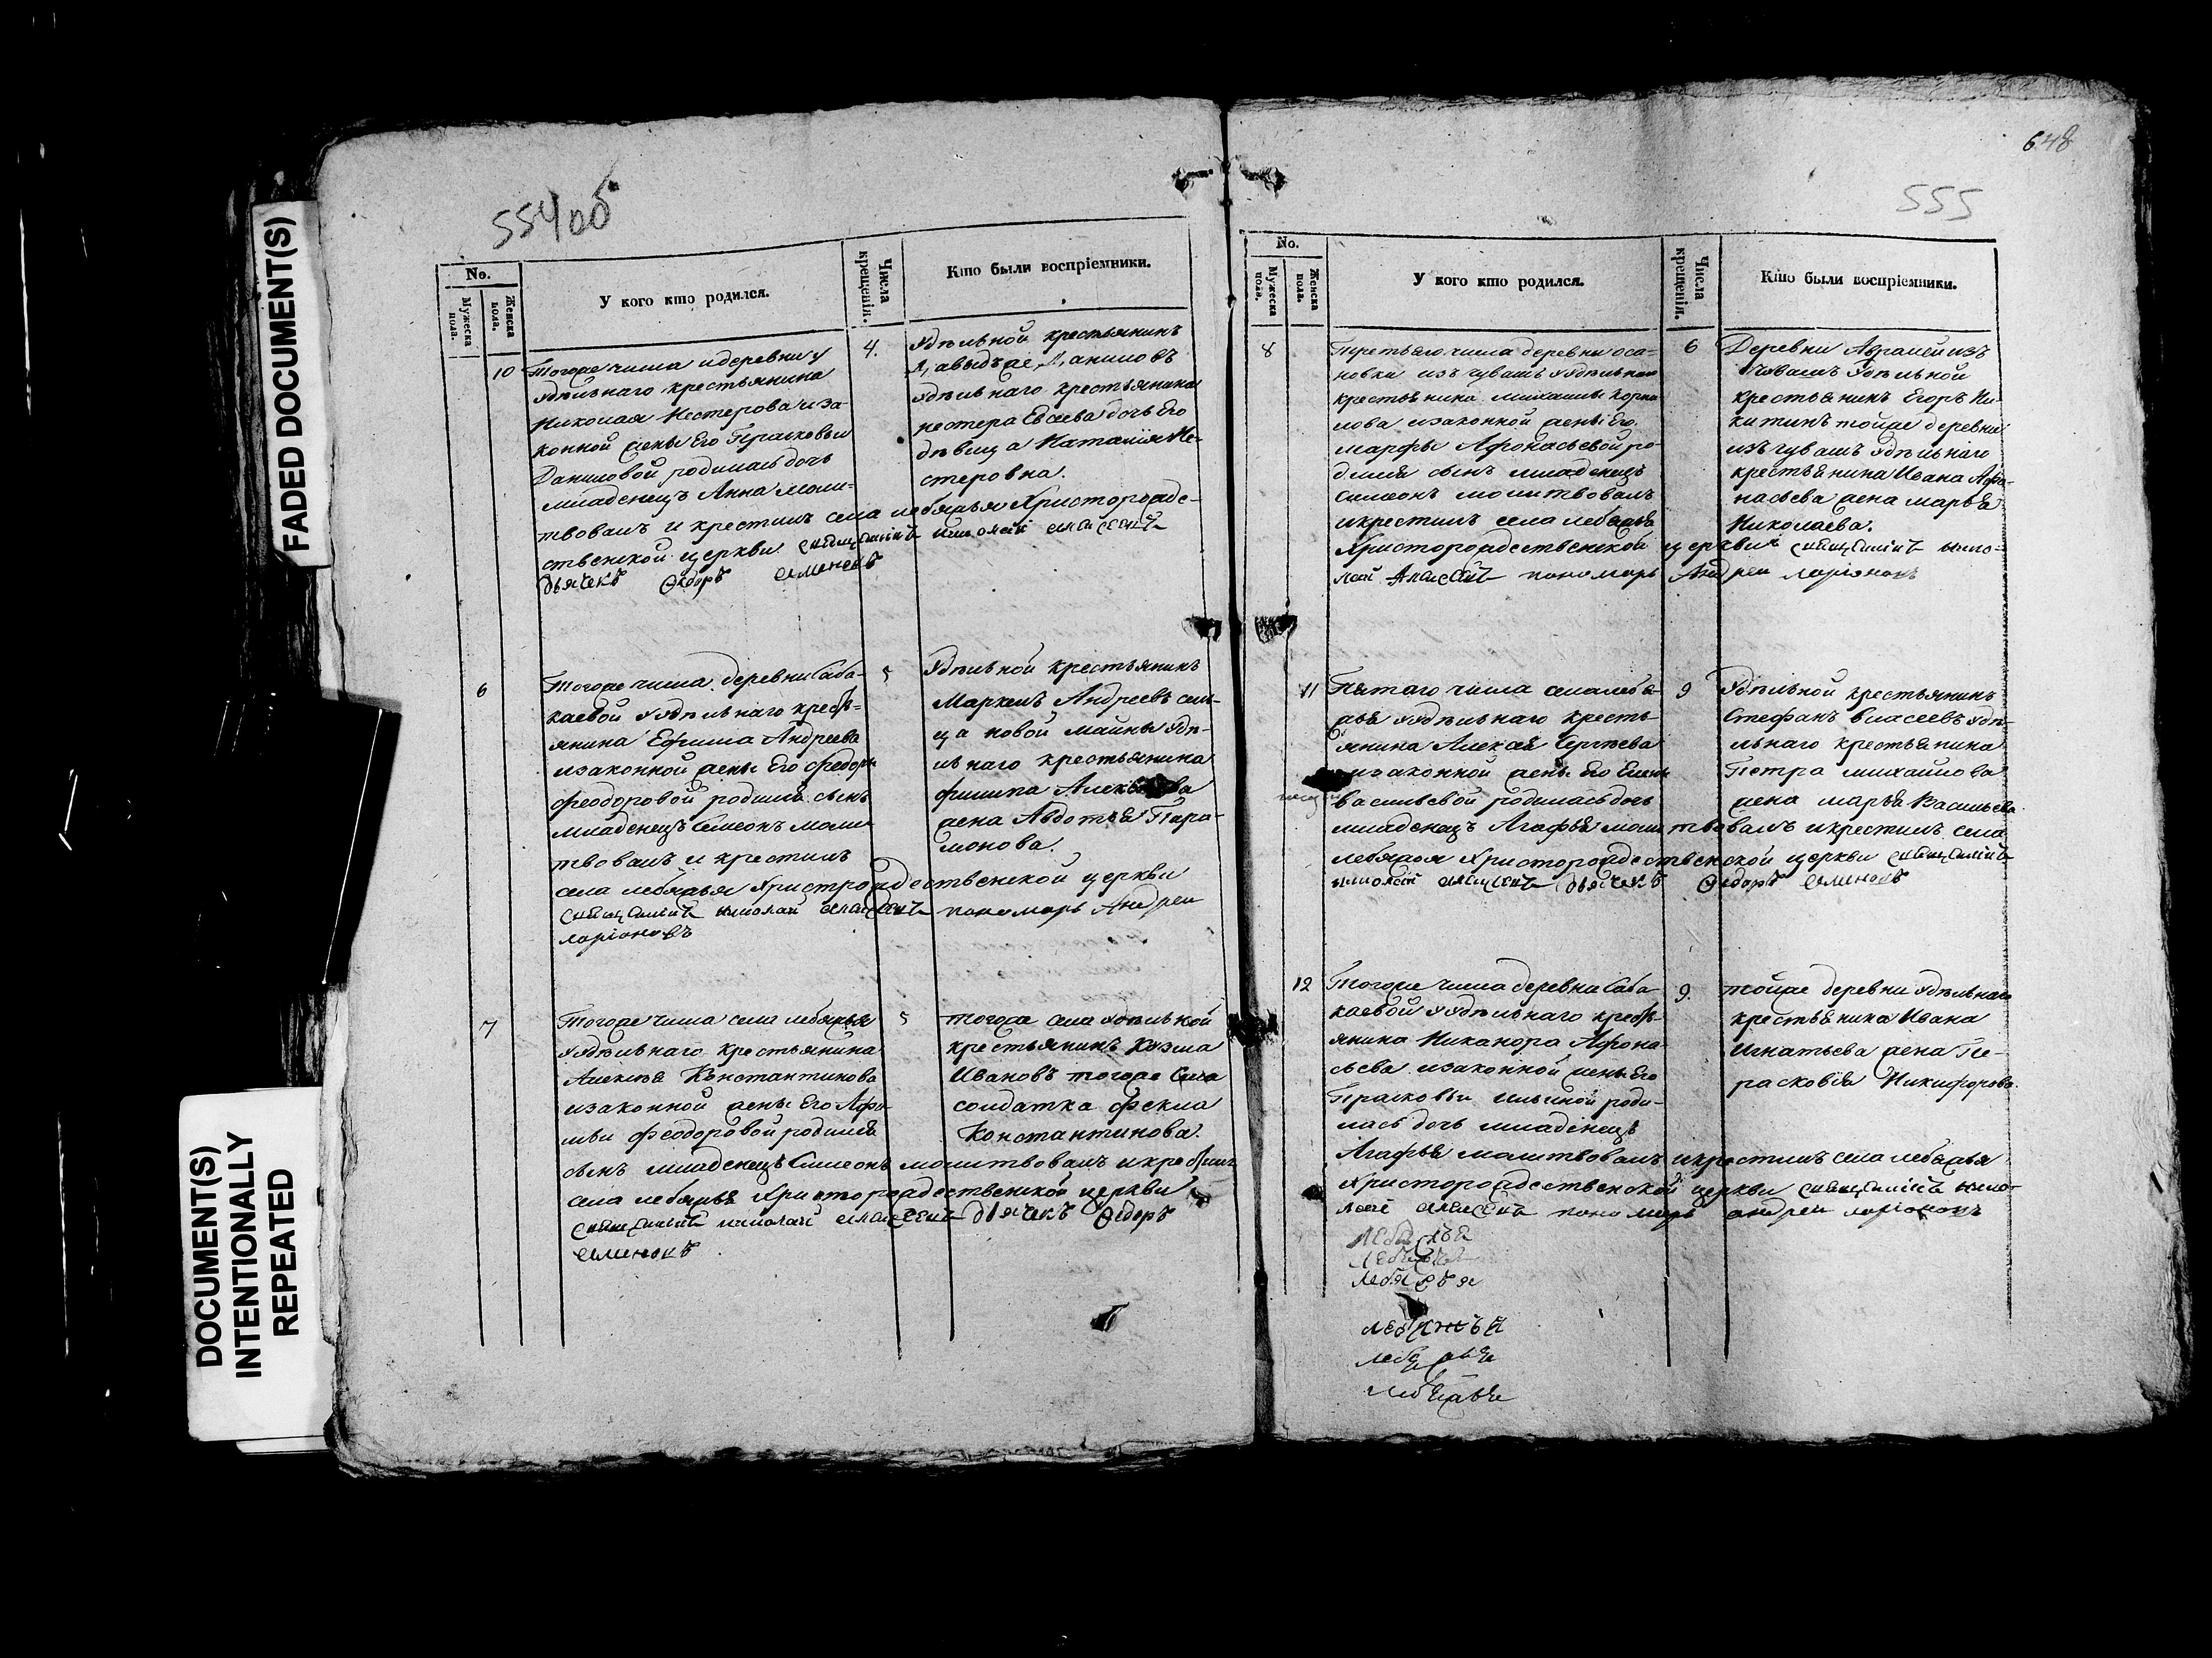 FADED DOCUMENT(S)
DOCUMENT(S)
INTENTIONALLY
REPEATED
554 об
No.
Мужеска пола.
Женска пола.
У кого кто родился.
Числа крещенія.
Кто были воспріемники.
10
Тогоже числа идеревни у
удѣльнаго крестьянина
Николая Нестерова иза-
конной жены Его Прасковьи
Даниловой родилась дочь
младенецъ Анна моли-
твовалъ и крестилъ села лебяжья Христорожде-
ственской церкви священникъ николай алексеевъ
дьячекъ Ѳедоръ семеновъ
4.
Удѣльной крестьянинъ
Даниловъ
удѣльнаго крестьянина
нестера Евсеева дочь Его
дѣвица Наталия Не-
стеровна.
6
Тогоже числа деревни Саба-
каевой уудѣльнаго кресть-
янина Ефима Андреева
изаконной жены Его Федоры
феодоровой родился сынъ
младенецъ Симеонъ моли
твовалъ и крестилъ
села лебяжья Христрождественской церкви
священникъ николай алексеевъ пономарь Андреи
ларіоновъ
5
Удѣльной крестьянинъ
Маркелъ Андреевъ сель-
ца новой майны Удѣ-
льнаго крестьянина
филипа
жена Авдотья Пара-
монова.
7
Тогоже числа села лебяжья
уудѣльнаго крестьянина
Алексѣя Константинова
изаконной жены Его
феодоровой родился
сынъ младенецъ Симеонъ молитвовалъ икрестилъ
села лебяжья Христорождественской церкви
священникъ николай алексеевъ дьячекъ Ѳедоръ
семеновъ
5
тогоже села удѣльной
крестьянинъ Козма
Ивановъ тогоже Села
солдатка фекла
Константинова.
648
555
No.
Мужеска пола.
Женска пола.
У кого кто родился.
Числа крещенія.
Кто были воспріемники.
8
Третьяго числа деревни оса-
новки изъ чувашъ уудѣльнаго
крестьянина михаилы Корни
лова изаконной жены Его
марфы Афонасьевой ро-
дился сынъ младенецъ
симеонъ молитвовалъ
икрестилъ села лебяжья
Христорождественской церкви священникъ нико-
лай Алексеевъ пономарь Андреи ларіоновъ
6
Деревни Авралей изъ
Чувашъ Удѣльной
крестьянинъ Егоръ Ни-
китинъ тойже деревни
изъ чувашъ удѣльнаго
крестьянина Ивана Афа-
насьева жена марья
Николаева.
11
Пятаго числа села лебя-
жья уудѣльнаго кресть-
янина Алексея Сергѣева
изаконной жены Его Елены
васильевой родилась дочь
младенецъ Агафья молитвовалъ икрестилъ села
лебяжья Христорождественской церкви священникъ
николай алексеевъ дьячекъ Ѳедоръ семеновъ
9
Удѣльной крестьянинъ
Стефанъ власеевъ удѣ-
льнаго крестьянина
Петра михайлова
жена марья Васильева
12
Тогоже числа деревни Саба-
каевой уудѣльнаго кресть-
янина Никанора Афона-
сьева изаконной жены Его
Прасковьи ильиной роди-
лась дочь младенецъ
Агафья молитвовалъ икрестилъ села лебяжья
Христорождественской церкви священникъ нико-
лай алексеевъ пономарь андреи ларіоновъ
9.
тойже деревни удѣльнаго
крестьянина Ивана
Игнатьева жена Пе-
расковья Никифорова
лебяжья
лебяжья
лебяжья
лебяжья
лебяжья
лебяжья